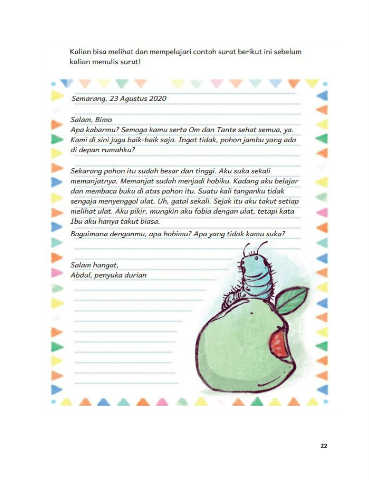 Kalian bisa melihat dan mempelajari contoh surat berikut ini sebelum
kalian menulis surat!
Semarang, 23 Agustus 2020
Salam, Bima
Apa kabarmu? Semoga kamu serta Om dan Tante sehat semua, ya.
Kami di sini juga baik-baik saja. Ingat tidak, pohon jambu yang ada
di depan rumahku?
Sekarang pohon itu sudah besar dan tinggi. Aku suka sekali
memanjatnya. Memanjat sudah menjadi hobiku. Kadang aku belajar
dan membaca buku di atas pohon itu. Suatu kali tanganku tidak
sengaja menyenggol ulat. Uh, gatal sekali. Sejak itu aku takut setiap
melihat ulat. Aku pikir, mungkin aku fobia dengan ulat, tetapi kata
Ibu aku hanya takut biasa.
Bagaimana denganmu, apa hobimu? Apa yang tidak kamu suka?
Salam hangat,
Abdul, penyuka durian
22